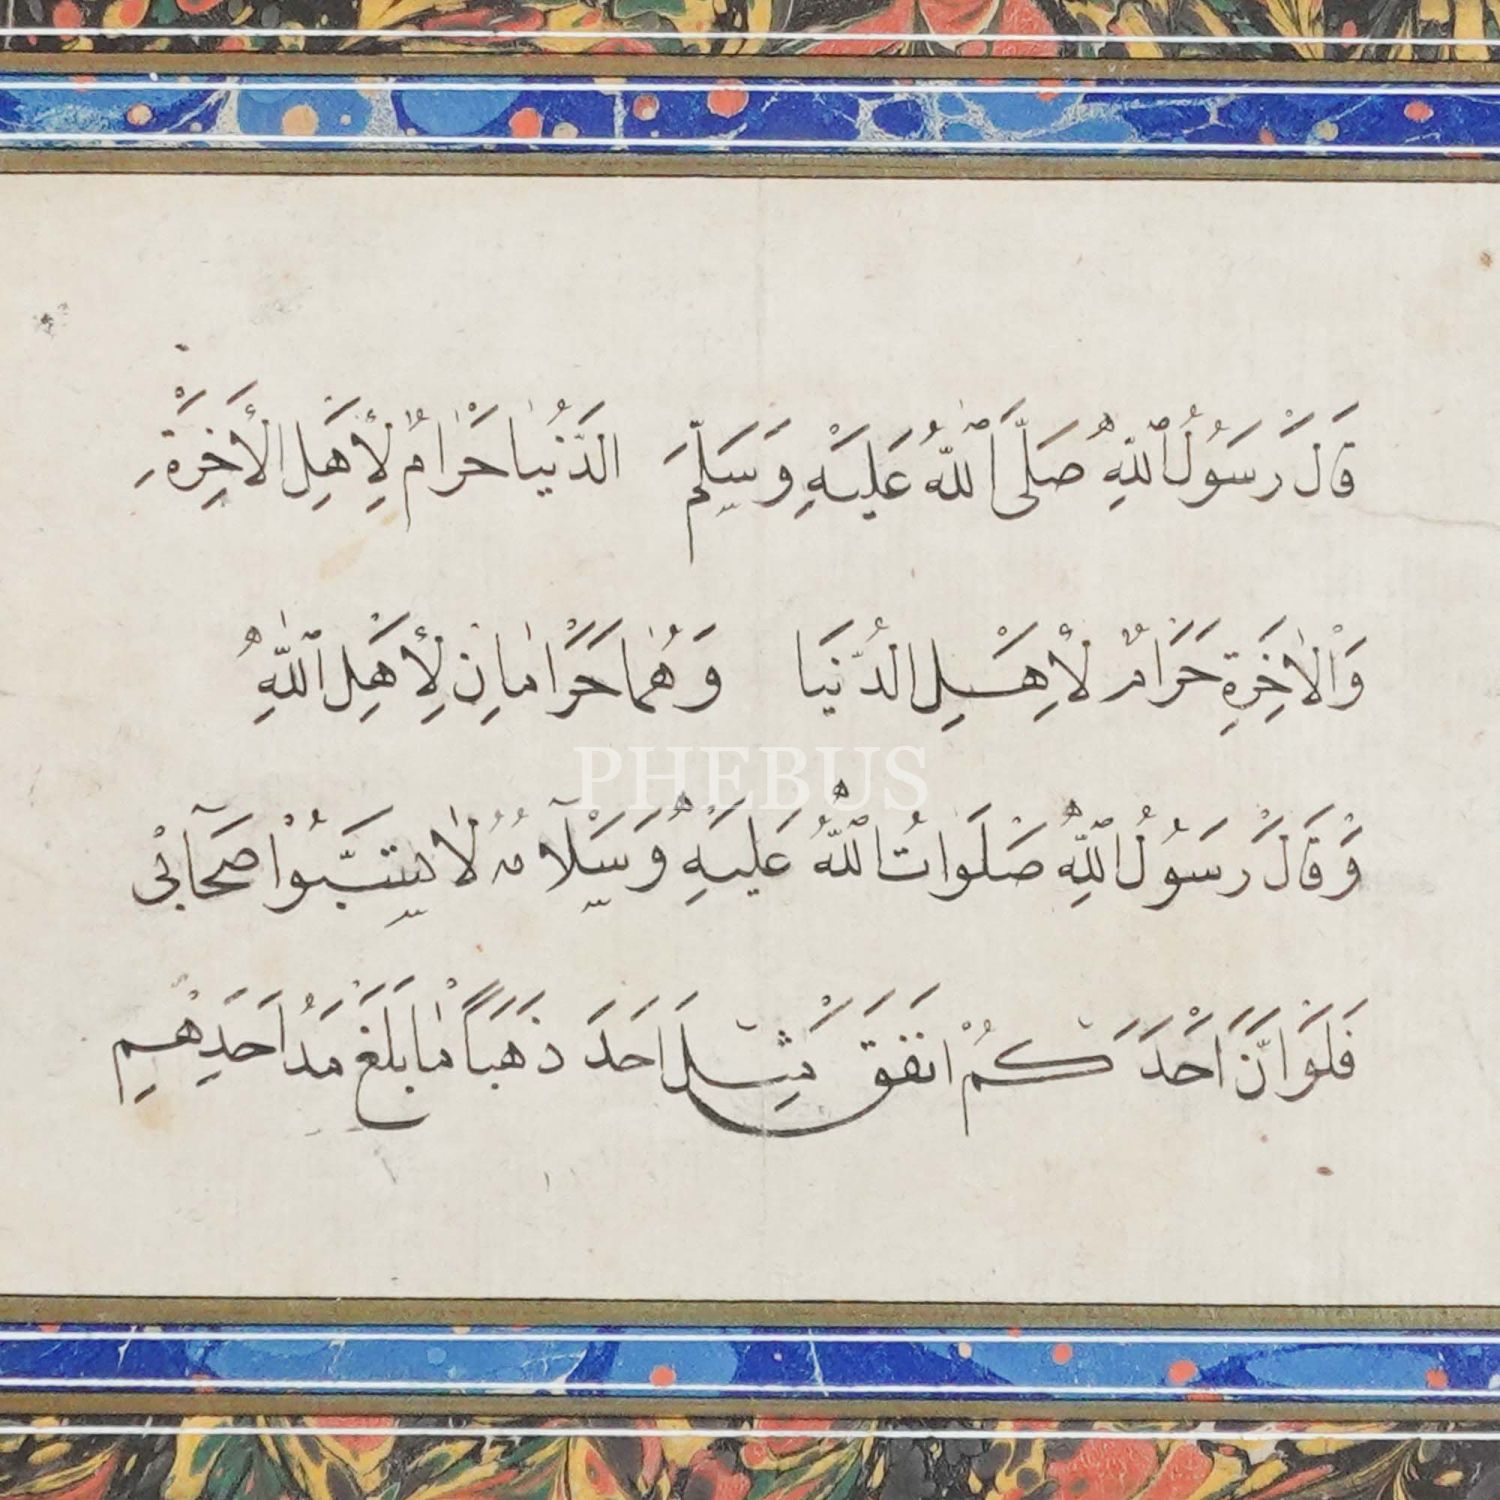 قَالَ رَسُولُ ٱللهِ صَلَّى ٱللهُ عَلَيْهِ وَسَلَّمَ الدُّنْيَا حَرَامٌ لِأَهْلِ الْأَخِرَةِ
وَالْاٰخِرَةِ حَرَامٌ لِأَهْلِ الدُّنْيَا وَهُمَا حَرَامَانِ لِأَهْلِ ٱللهِ
PHEBUS
وَقَالَ رَسُولُ ٱللهِ صَلَوَاتُ ٱللهِ عَلَيْهِ وَسَلَامُهُ لَا تَسُبُّوا صَحَابِي
فَلَوْ اَنَّ اَحَدَكُمْ انْفَقَ مِثْلَ اَحَدَ ذَهَبًا مَا بَلَغَ مُدَّ اَحَدِهِمْ